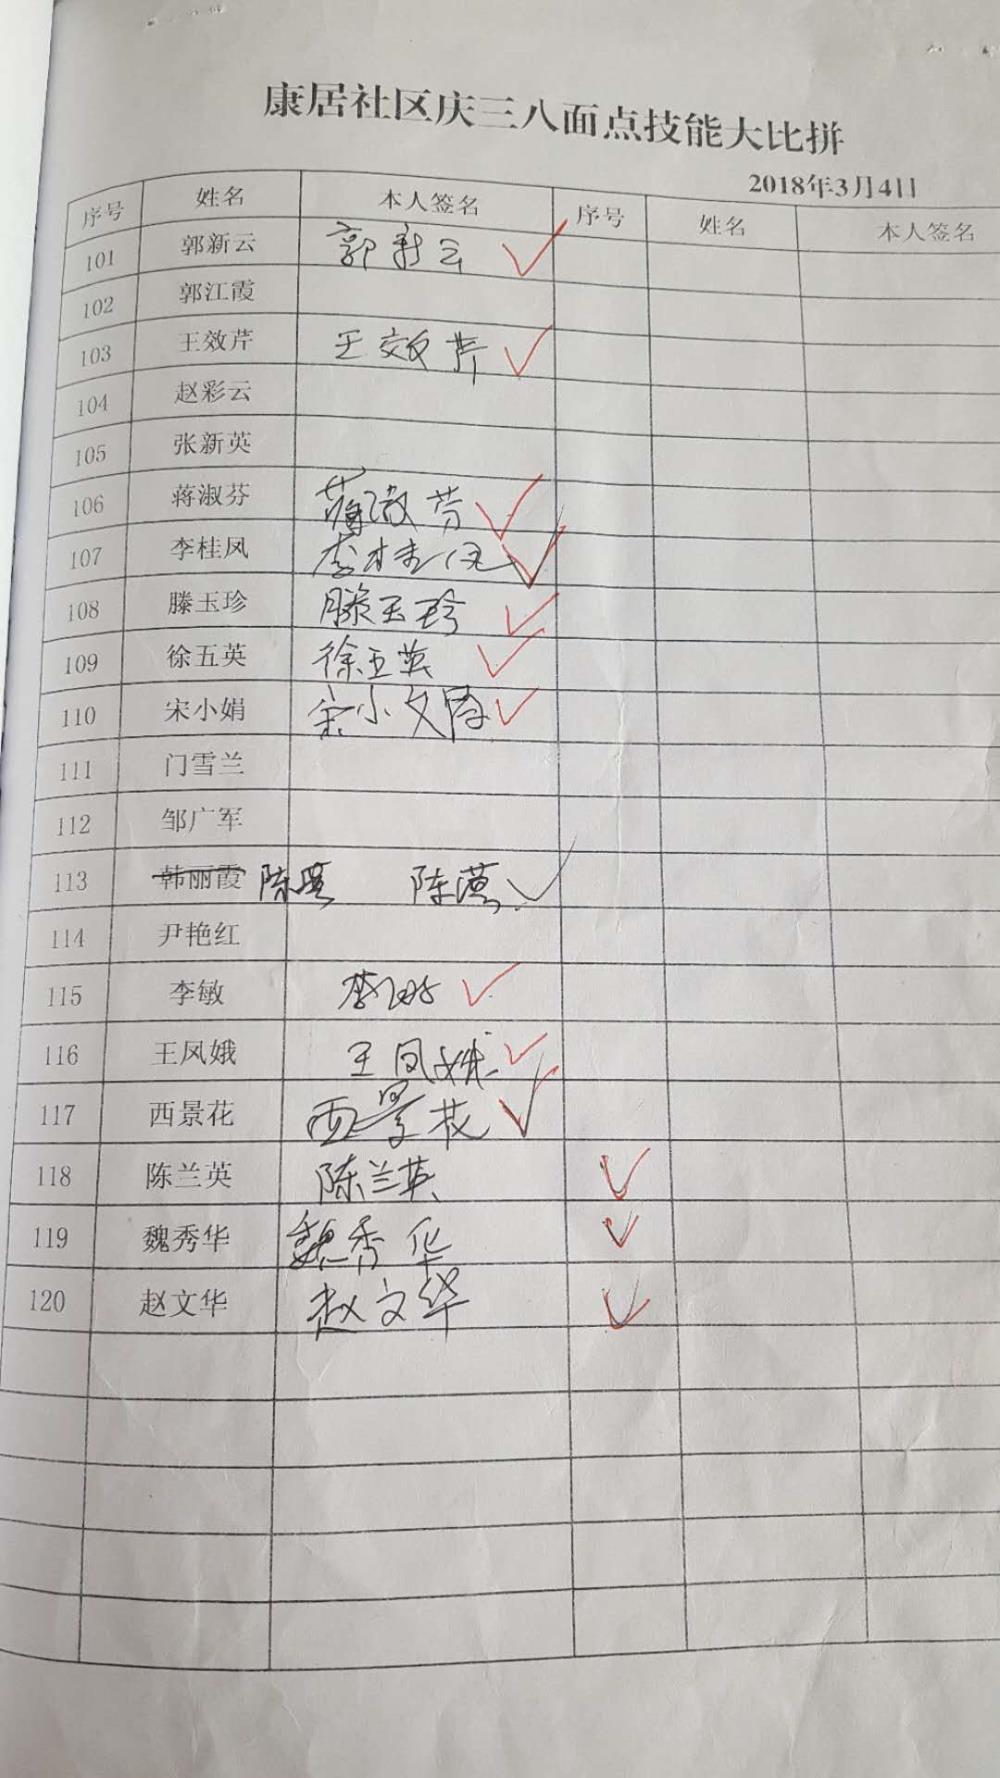 康居社区庆三八面点技能大比拼
2018年3月4日
序号 姓名 本人签名 序号 姓名 本人签名
101 郭新云 郭新云
102 郭江霞
103 王效芹 王效芹
104 赵彩云
105 张新英
106 蒋淑芬 蒋淑芬
107 李桂凤 李桂凤
108 滕玉珍 滕玉珍
109 徐五英 徐五英
110 宋小娟 宋小娟
111 门雪兰
112 邹广军
113 韩丽霞 陈 陈
114 尹艳红
115 李敏 李
116 王凤娥 王凤娥
117 西景花 西景花
118 陈兰英 陈兰英
119 魏秀华 魏秀华
120 赵文华 赵文华